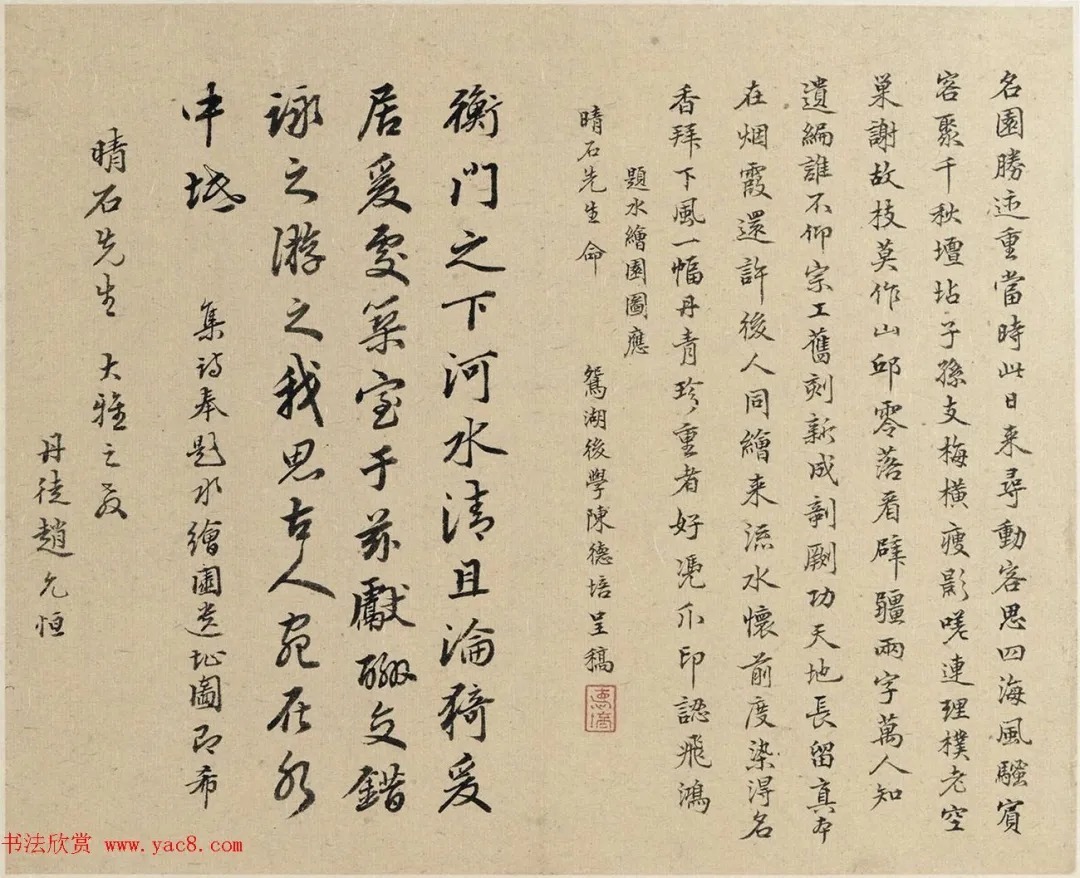 名園勝迹重當時此日来尋動客思四海風騷賓
容聚千秋壇坫子孫支梅橫瘦影嗟連理樸老空
巢謝故枝莫作山邱零落看辟疆兩字萬人知
遺編誰不仰宗工舊刻新成剞劂功天地長留真本
在烟霞還許後人同繪来流水懷前度染得名
香拜下風一幅丹青珍重者好憑爪印認飛鴻
題水繪園圖應
晴石先生命
鴛湖後學陳德培呈稿
衡門之下河水清且淪猗爰
居爰處築室于茲獻酬交錯
詠之游之我思古人宛在水
中坻
集詩奉題水繪園遺址圖即希
晴石先生大雅之教
丹徒趙允恒
书法欣赏 www.yac8.com